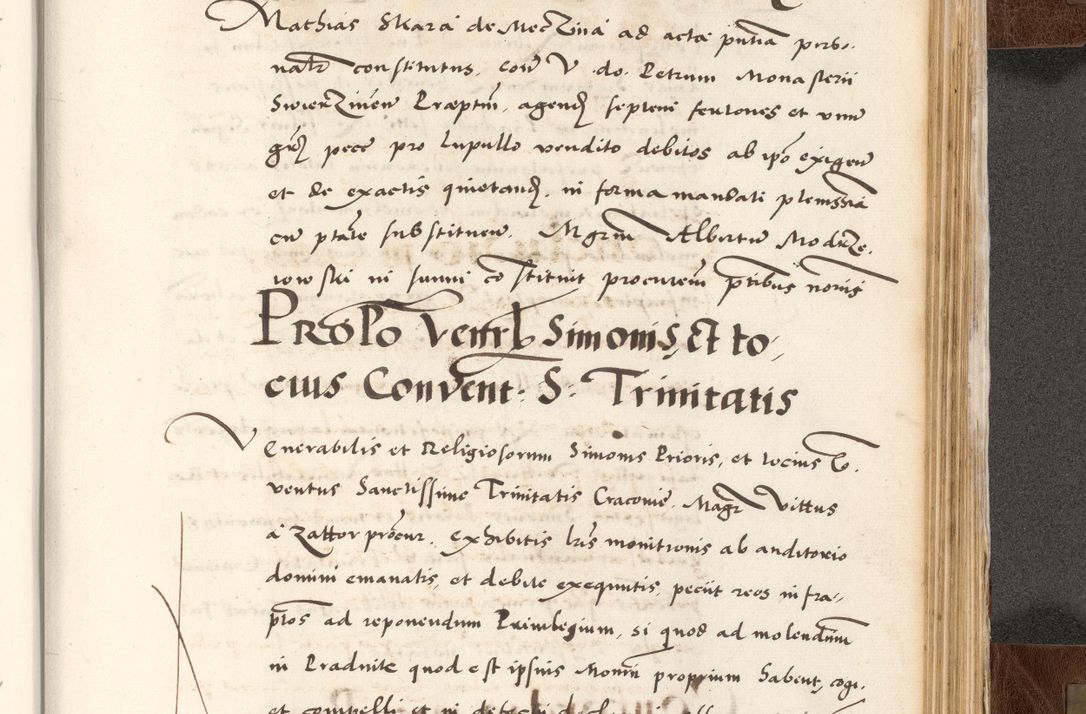 Mathias Skara de Meczina ad acta pntia perso-
nalr constitutus, coram V. do. Petrum Monasterii
Swierzinen Præptm, agend septem fertones et unum
gr pece pro lupullo vendito debitos ab ipo exigen
et de exactis quietand, in forma mandati plenssia
cu ptate substituen. Mgrm Albertum Modrze-
iowski in suum constituit procurem ptibus noris
Pro Po Venerb Simonis, Et to-
cius Convent. S. Trinitatis
Venerabilis et Religiosorum Simonis Prioris, et tocius Co-
ventus Sanctissime Trinitatis Cracovie. Magr Vittus
a Zattor procur. exhibitis lris monitionis ab auditorio
domini emanatis, et debite exequutis, peciit reos infra-
ptos ad reponendum Privilegium, si quod ad molendinum
in Pradnik quod est ipsius Monrii proprium habent, cogi
et compelli et in